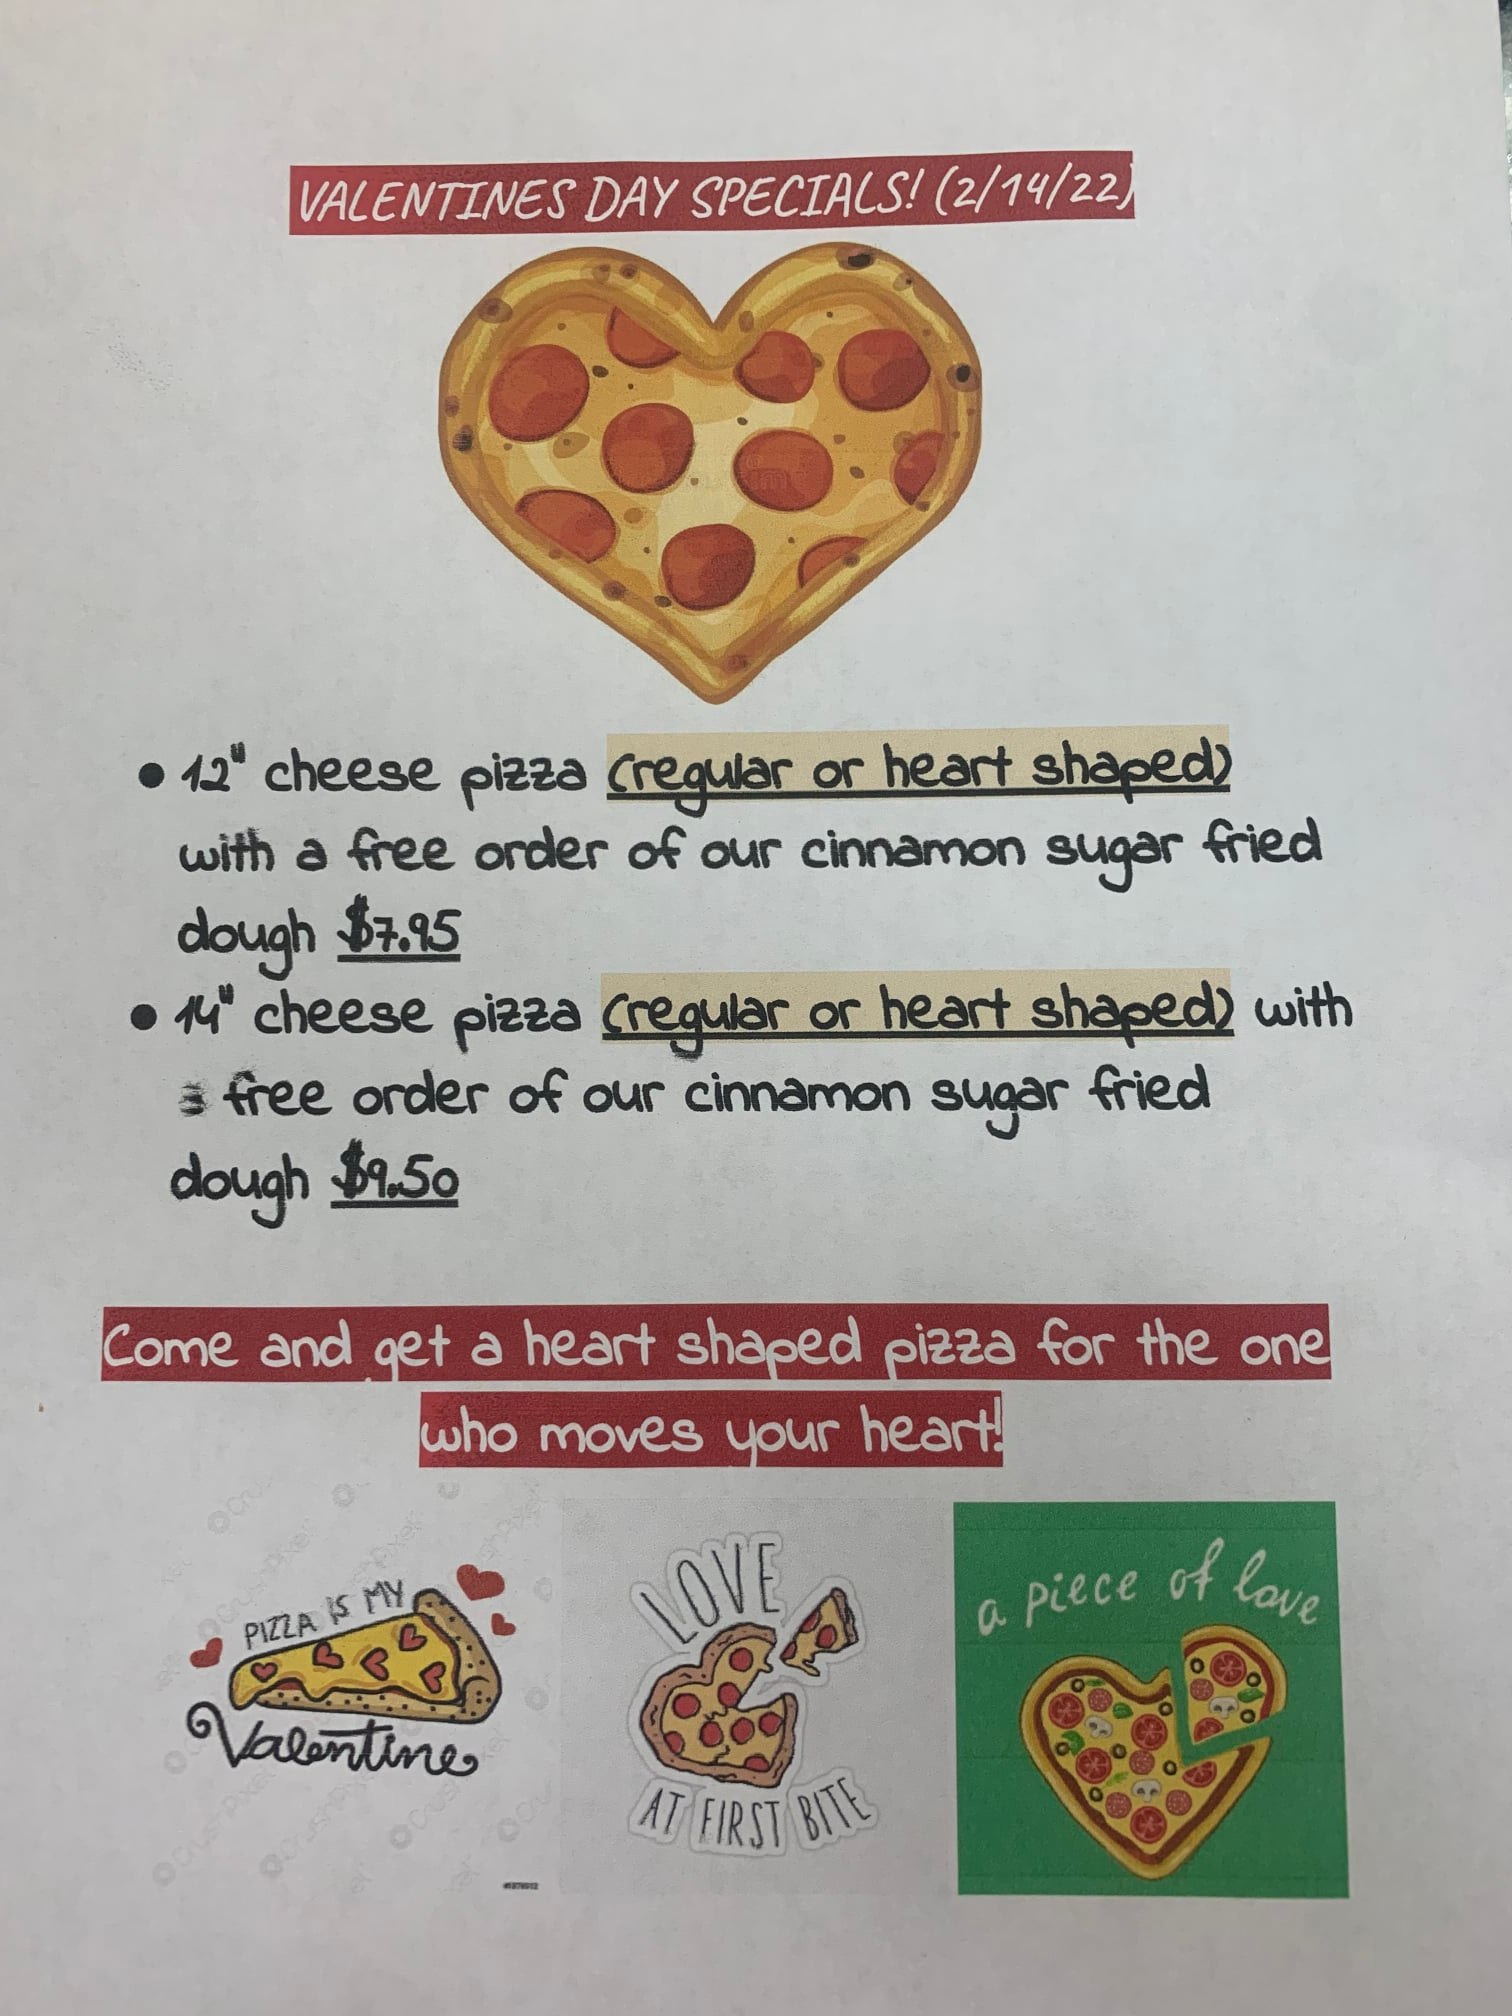 VALENTINES DAY SPECIALS! (2/14/22)
• 12" cheese pizza (regular or heart shaped)
with a free order of our cinnamon sugar fried
dough $7.95
• 14" cheese pizza (regular or heart shaped) with
a free order of our cinnamon sugar fried
dough $9.50
Come and get a heart shaped pizza for the one
who moves your heart!
PIZZA IS MY
Valentine
LOVE
AT FIRST BITE
a piece of love